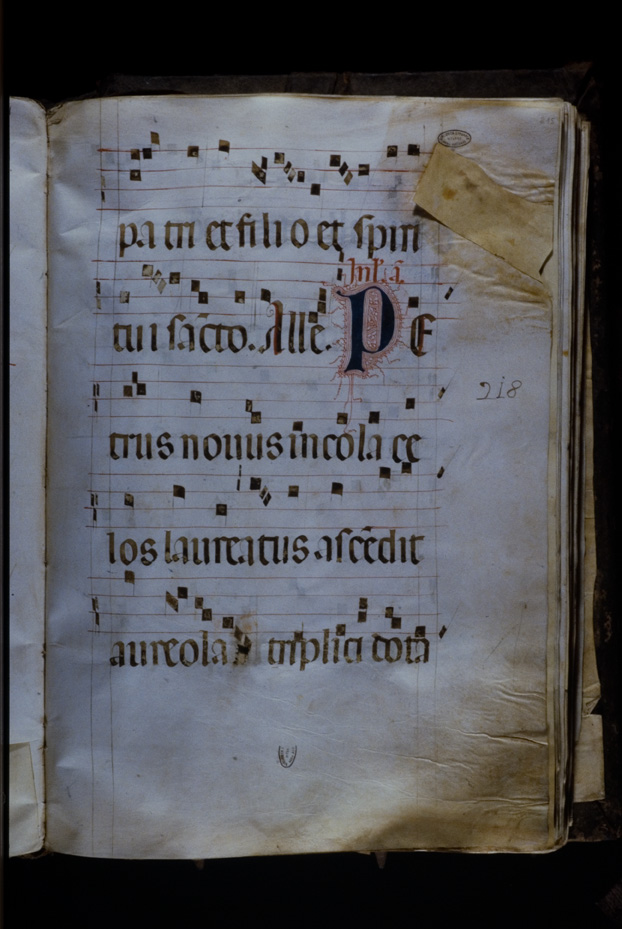 pa tri et fi li o et spiri
In lau.
tui sācto. Alle. P E
trus nouus incola ce
218
los laureatus ascēdit
aureola triplici dota